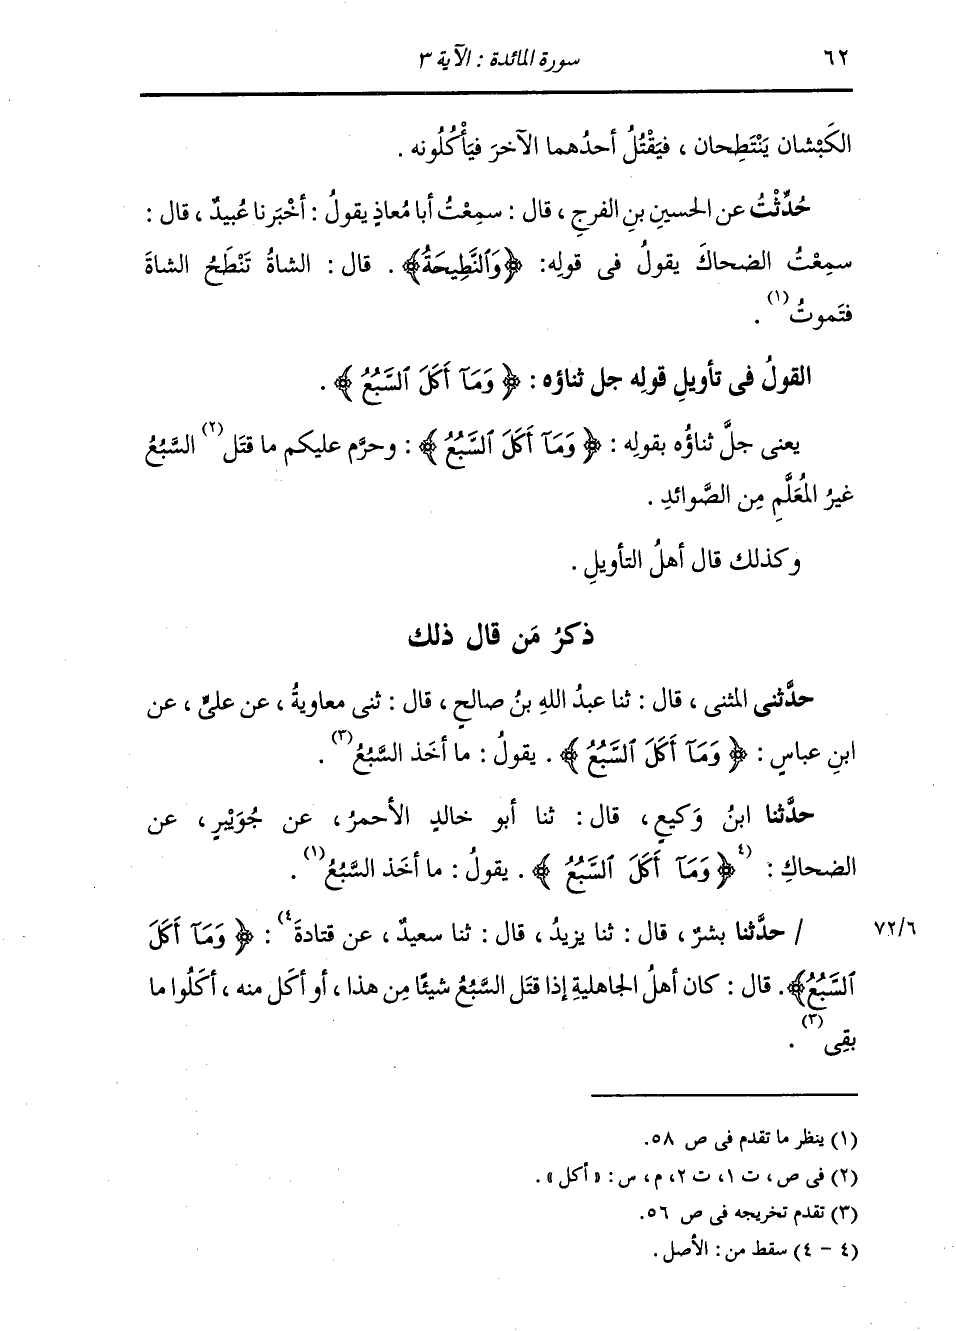 ٦٢ سورة المائدة : الآية ٣
الكَبْشان يَنْتَطِحان ، فيَقْتُلُ أحدُهما الآخرَ فيَأْكُلُونه .
حُدِّثْتُ عن الحسينِ بنِ الفرجِ ، قال : سمِعْتُ أبا مُعاذٍ يقولُ : أخْبَرنا عُبيدٌ ، قال :
سمِعْتُ الضحاكَ يقولُ فى قولِه: ﴿وَٱلنَّطِيحَةُ﴾ . قال : الشاةُ تَنْطَحُ الشاةَ
فتَموتُ(١) .
القولُ فى تأويلِ قولِه جل ثناؤه : ﴿ وَمَآ أَكَلَ ٱلسَّبُعُ ﴾ .
يعنى جلَّ ثناؤُه بقولِه : ﴿ وَمَآ أَكَلَ ٱلسَّبُعُ ﴾ : وحرَّم عليكم ما قتَل(٢) السَّبُعُ
غيرُ المُعَلَّمِ مِن الصَّوائدِ .
وكذلك قال أهلُ التأويلِ .
ذكرُ مَن قال ذلك
حدَّثنى المثنى ، قال : ثنا عبدُ اللهِ بنُ صالحٍ ، قال : ثنى معاويةُ ، عن علىٍّ ، عن
ابنِ عباسٍ : ﴿ وَمَآ أَكَلَ ٱلسَّبُعُ ﴾ . يقولُ : ما أخَذ السَّبُعُ(٣) .
حدَّثنا ابنُ وَكيعٍ ، قال : ثنا أبو خالدٍ الأحمرُ ، عن جُوَيْبرٍ ، عن
الضحاكِ : (٤﴿ وَمَآ أَكَلَ ٱلسَّبُعُ ﴾ . يقولُ : ما أخَذ السَّبُعُ(١) .
٧٢/٦ / حدَّثنا بشرٌ ، قال : ثنا يزيدُ ، قال : ثنا سعيدٌ ، عن قتادةَ٤) : ﴿ وَمَآ أَكَلَ
ٱلسَّبُعُ﴾ . قال : كان أهلُ الجاهليةِ إذا قتَل السَّبُعُ شيئًا مِن هذا ، أو أكَل منه ، أكَلُوا ما
بقِى(٣) .
(١) ينظر ما تقدم فى ص ٥٨.
(٢) فى ص ، ت ١، ت ٢، م ، س : « أكل » .
(٣) تقدم تخريجه فى ص ٥٦.
(٤ - ٤) سقط من : الأصل .